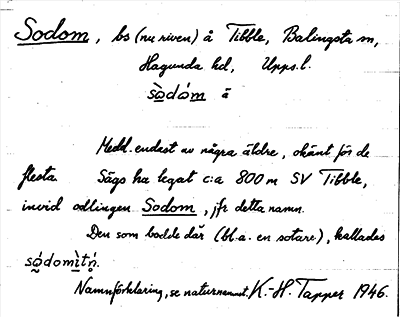 Sodom, bs (nu riven) å Tibble, Balingsta sn,
Hagunda hd, Upps.l.
sò̱dóm ä
Medd. endast av några äldre, okänt för de
flesta. Sägs ha legat c:a 800 m SV Tibble,
invid odlingen Sodom, jfr detta namn.
Den som bodde där (bl.a. en sotare), kallades
Namnförklaring, se naturnamnet. K.-H. Tapper 1946.